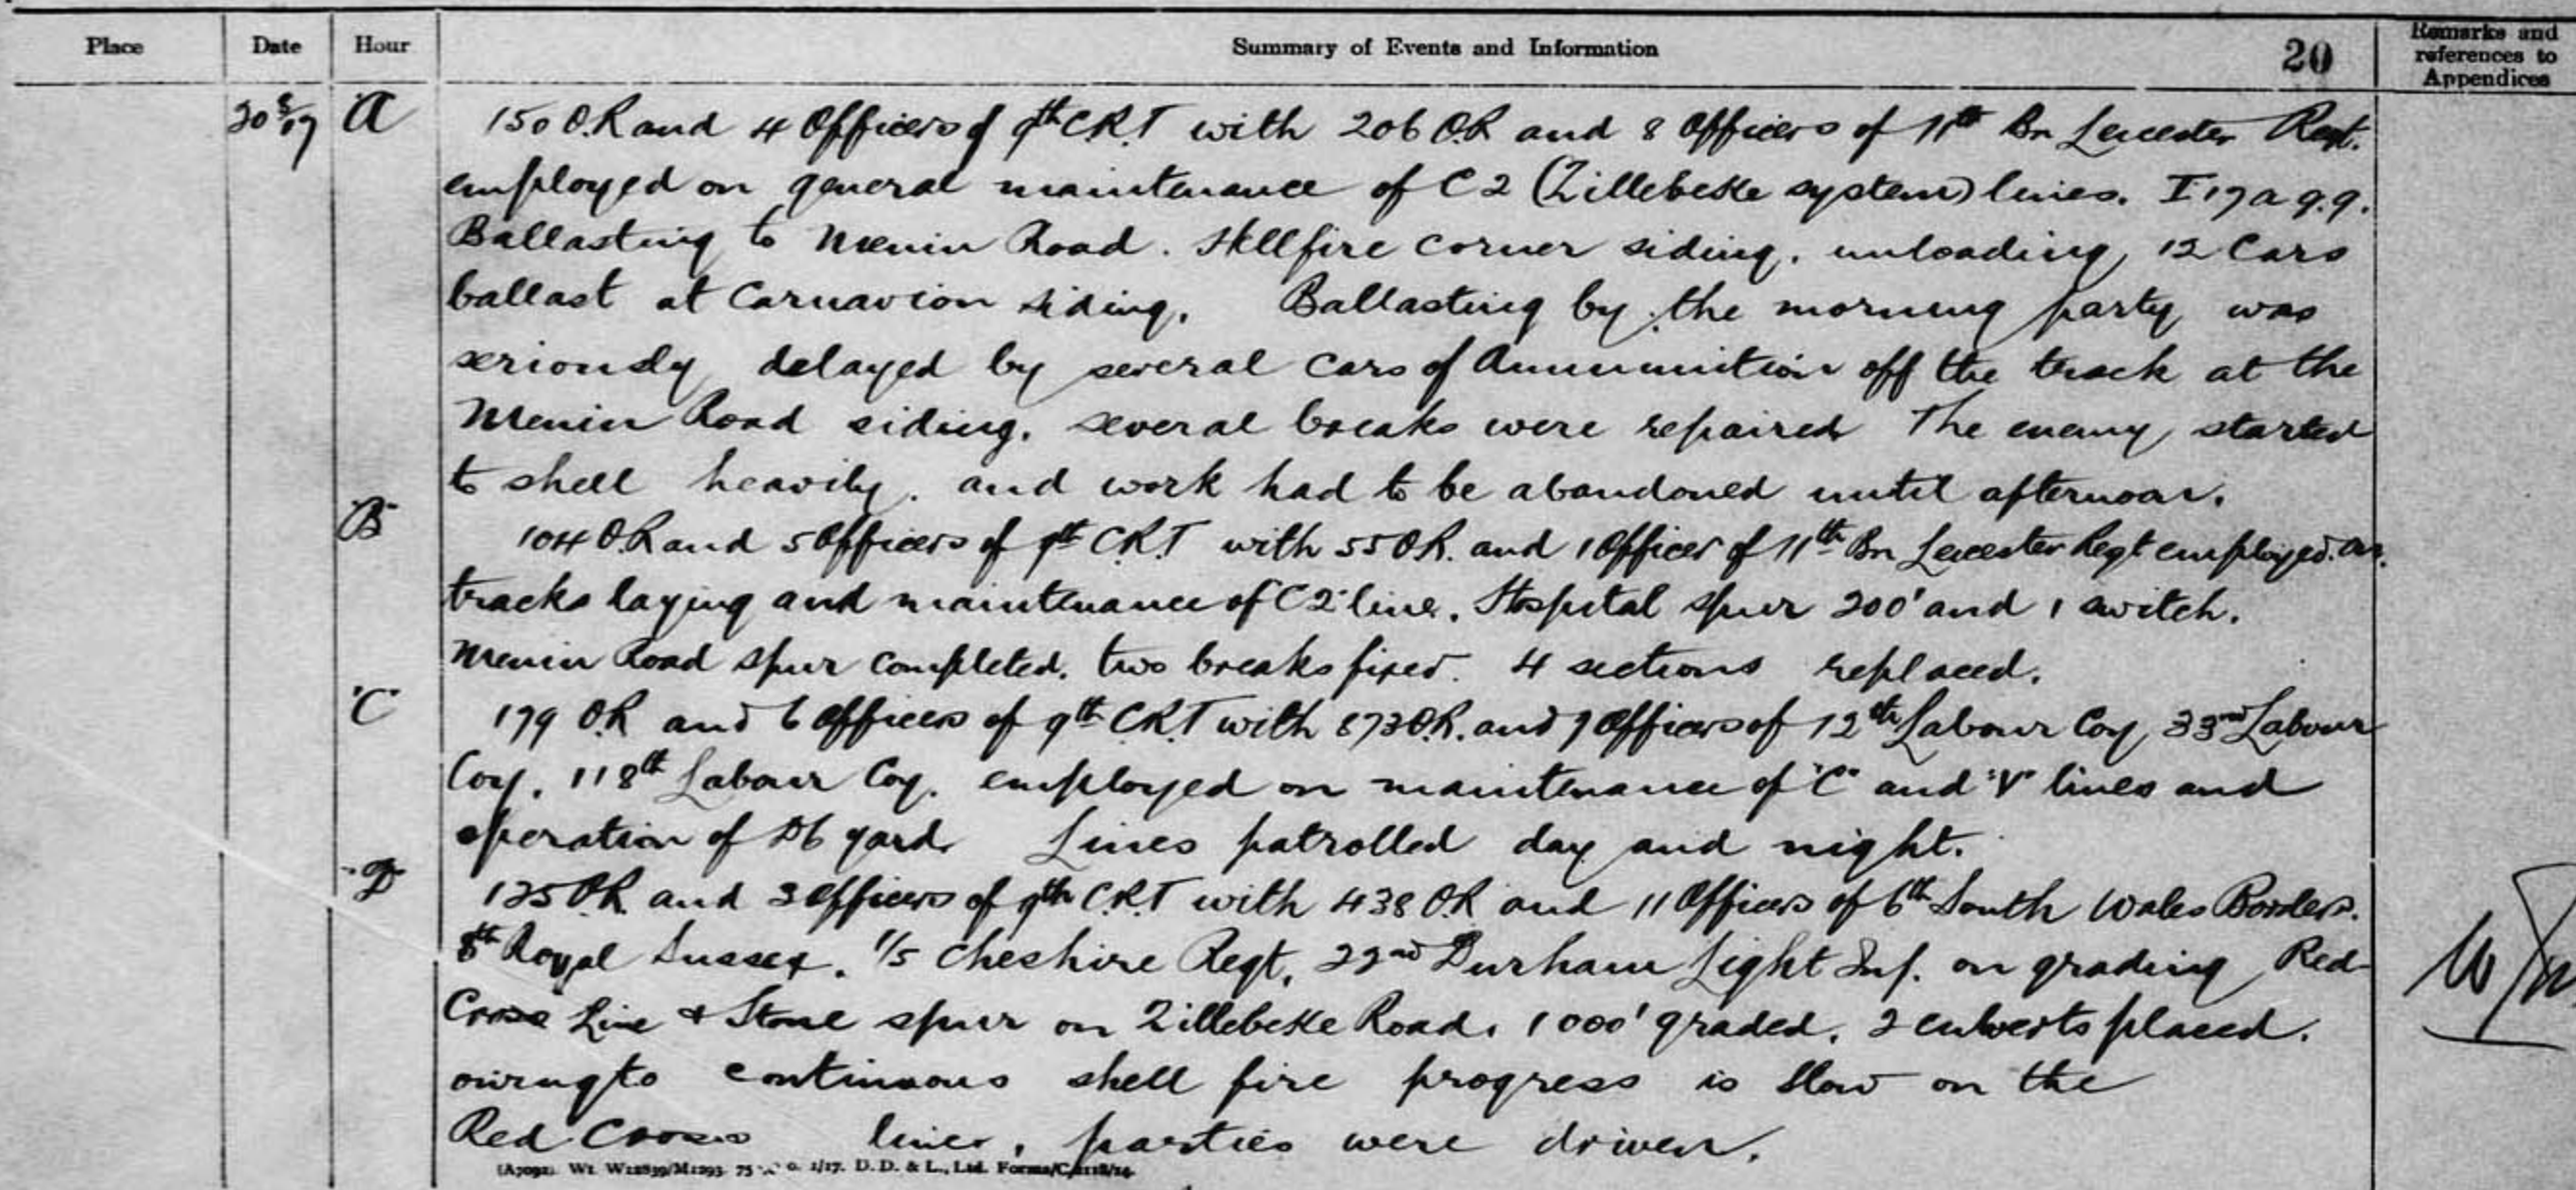 Place Date Hour Summary of Events and Information 20 Remarks and references to Appendices
A 150 O.R and 4 Officers of 9th C.R.T with 206 O.R and 8 Officers of 11th Bn Leicester Regt.
employed on general maintenance of C2 (Zillebeke system) lines. I 17 a 9.9.
Ballasting to Menin Road. Hellfire Corner siding. unloading 12 Cars
ballast at Carnavion siding. Ballasting by the morning party was
seriously delayed by several cars of Ammunition off the track at the
Menin Road siding. several breaks were repaired The enemy started
to shell heavily. and work had to be abandoned until afternoon.
"B" 104 O.R and 5 Officers of 9th C.R.T with 55 O.R. and 1 Officer of 11th Bn Leicester Regt employed. on.
tracks laying and maintenance of C2 line. Hospital spur 200' and 1 switch.
Menin Road spur completed. two breaks fixed. 4 sections replaced.
"C" 179 O.R and 6 Officers of 9th C.R.T with 873 O.R. and 9 Officers of 12th Labour Coy, 33rd Labour
Coy. 118th Labour Coy. employed on maintenance of "C" and "V" lines and
operation of D6 yard. Lines patrolled day and night.
"D" 125 O.R. and 3 Officers of 9th C.R.T with 438 O.R and 11 Officers of 6th South Wales Borders.
8th Royal Sussex. 1/5 Cheshire Regt, 22nd Durham Light Inf. on grading Red
Cross Line & Stone spur on Zillebeke Road. 1000' graded. 2 culverts placed.
owing to continuous shell fire progress is slow on the
Red Cross lines, parties were driven.
D. D. & L., Ltd.